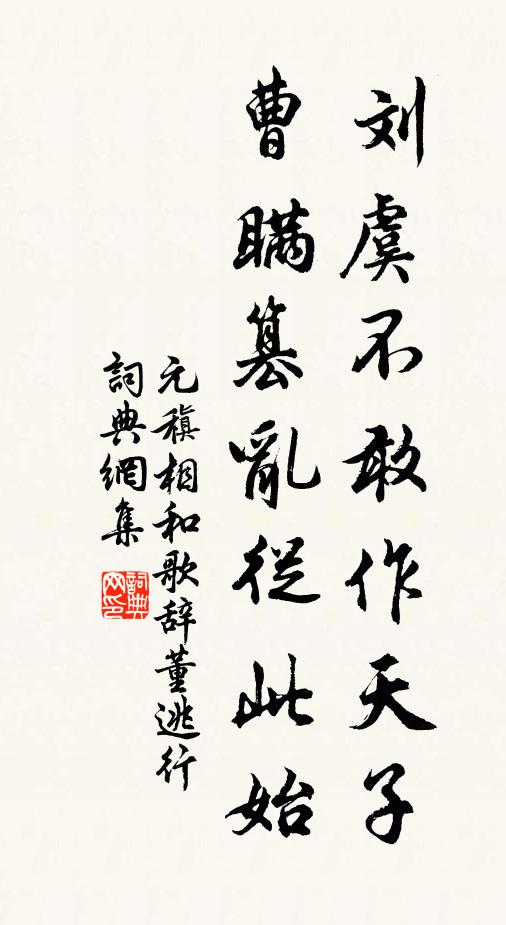 刘虞不敢作天子
曹瞞篡亂從此始
元稹相和歌辞董逃行
詞典網集
詞典网印